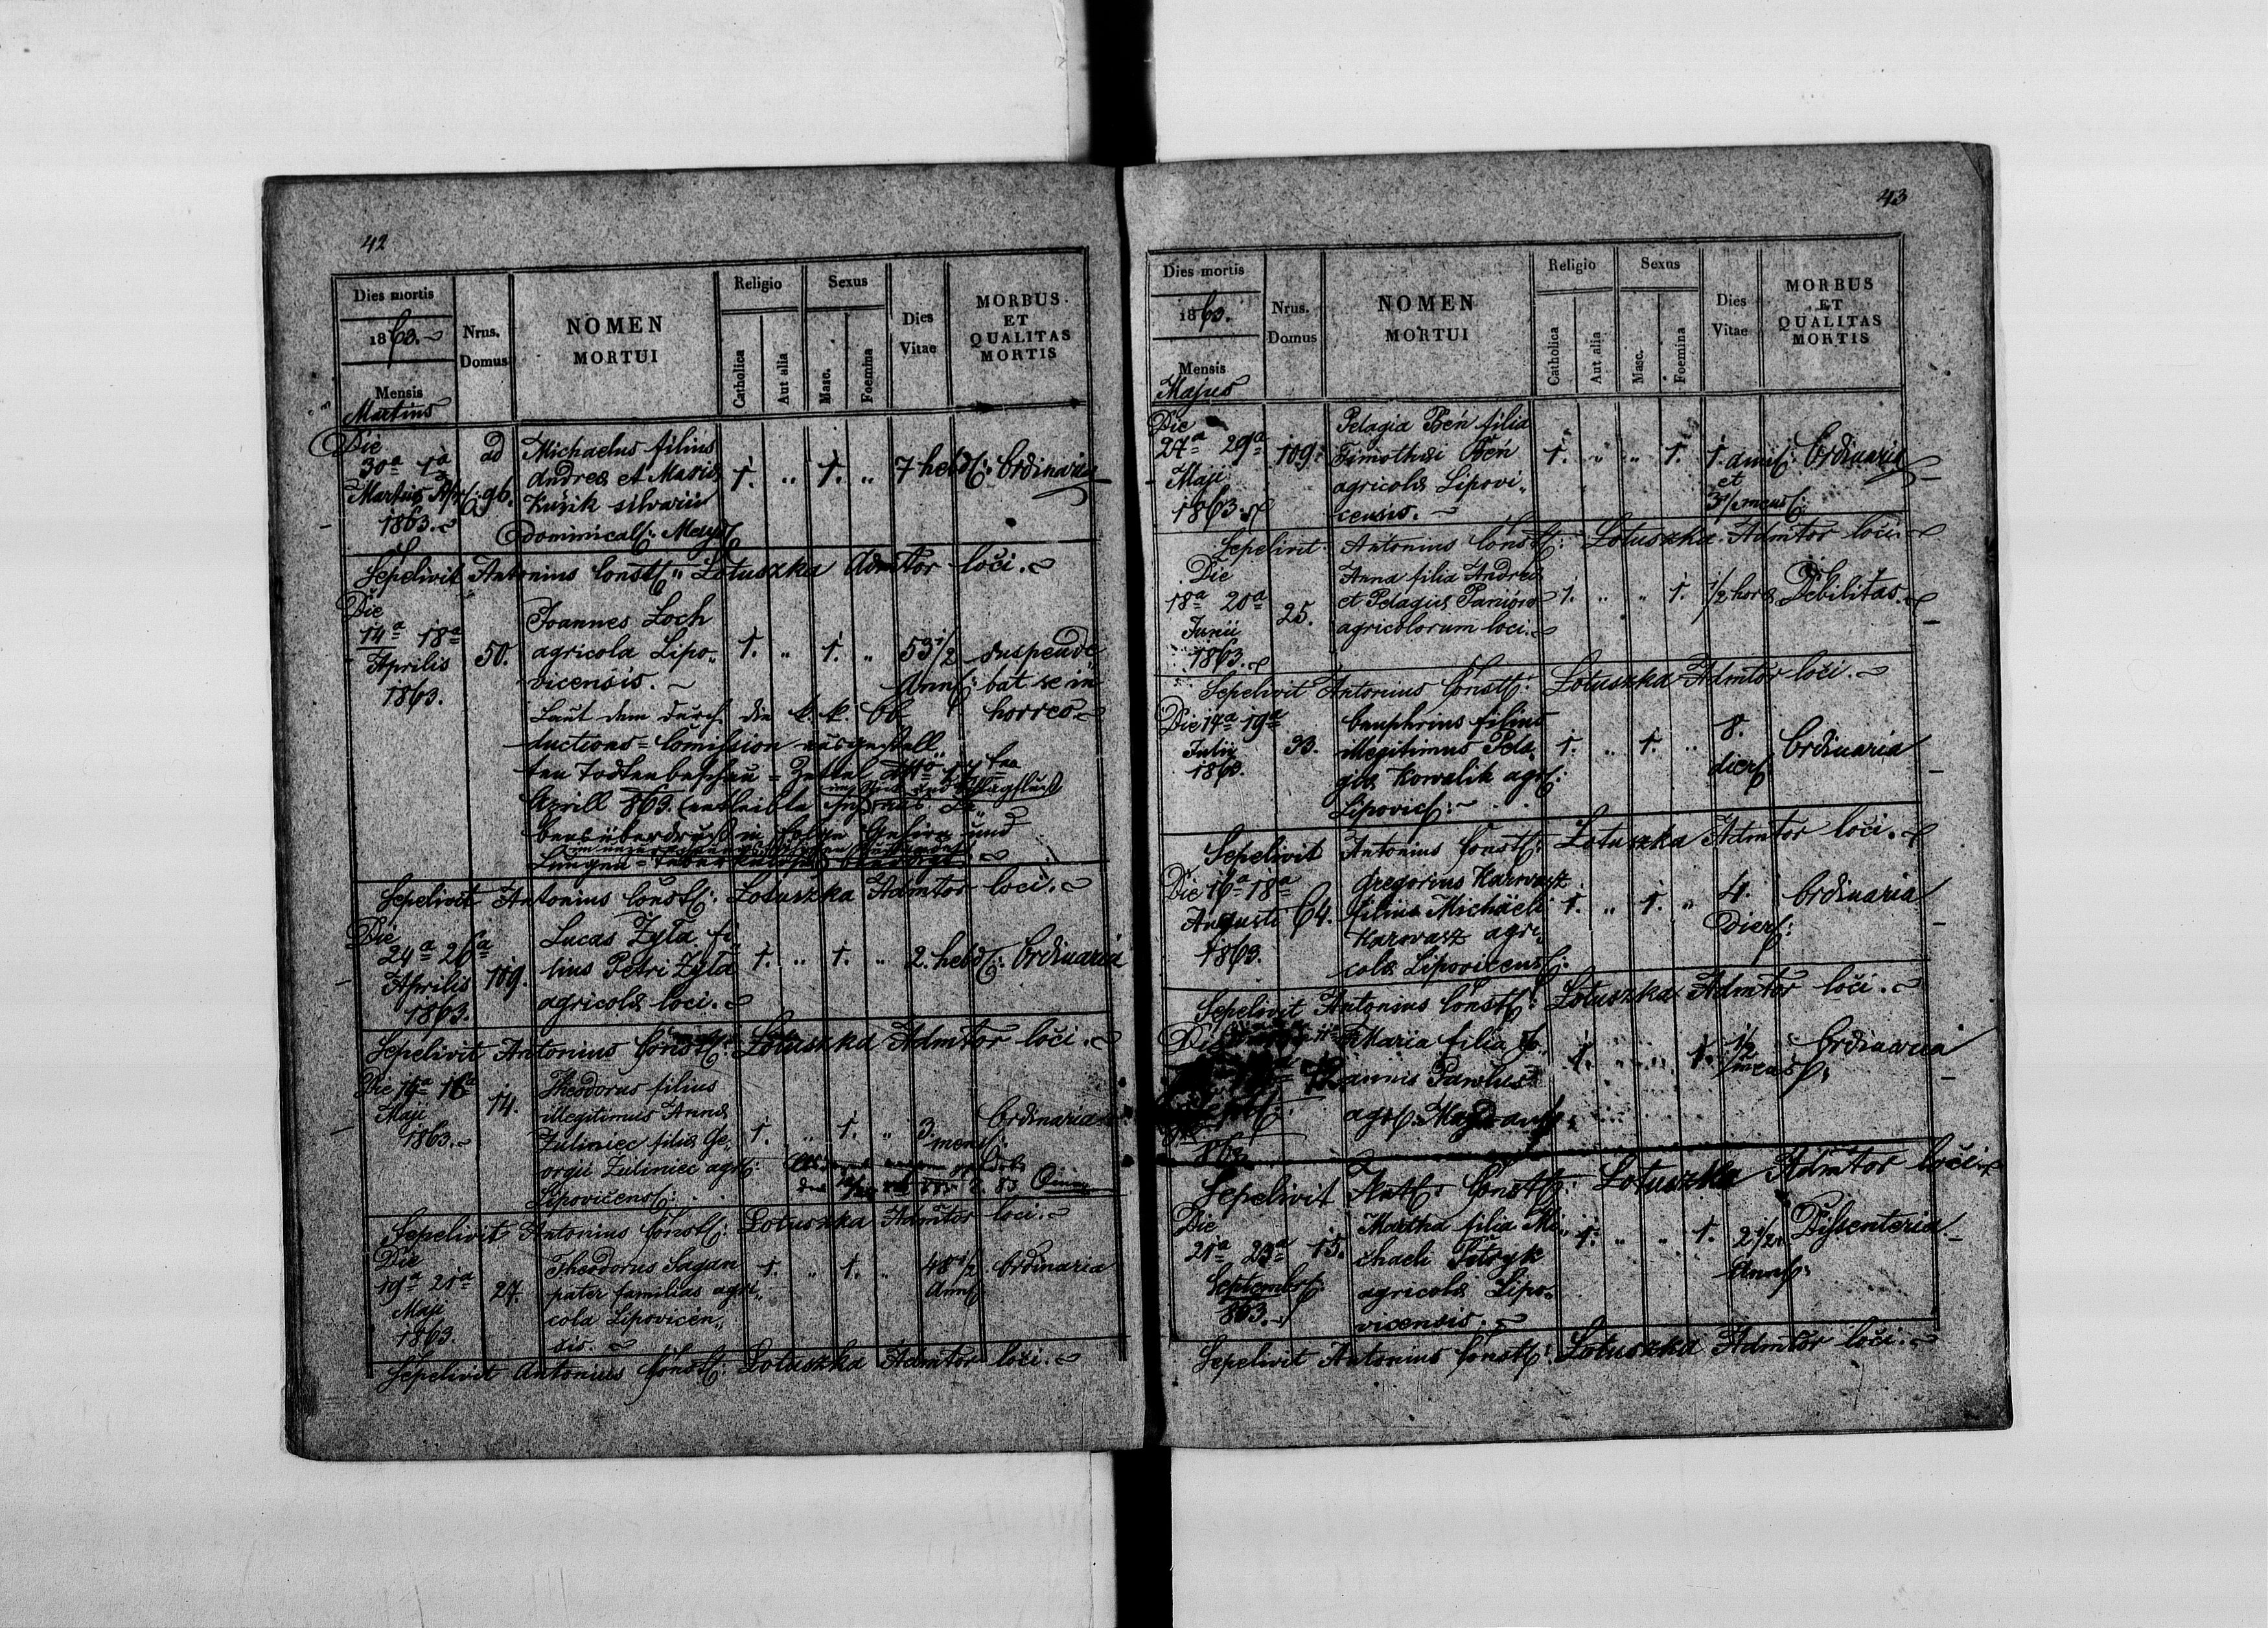 42
Dies mortis
1863.
Mensis
Martius
Nrus.
Domus
NOMEN
MORTUI
Religio
Catholica
Aut alia
Sexus
Masc.
Foemina
Dies
Vitae
MORBUS
ET
QUALITAS
MORTIS
Die
30a 1a
Martius Apr:
1863.
ad
96.
Michaelus filius
Andreae et Mariae
silvarii
dominical:
1. " 1. " 7 hebd: Ordinaria
Sepelivit Antonius Const: Lotuszka Admtor loci.
Die
14a 18a
Aprilis
1863.
50.
Joannes Loch
agricola Lipo„
vicensis.
1. " 1. " 53 1/2
Ann:
suspende„
bat se in
horreo
Laut dem durch die k. k. Ob
ductions=Comission ausgestell„
ten Todtenbeschau=Zettel dtto 17ten
Aprill 863. entleibte
bensüberdruß in Folge Gehirn und
Lungen=
Sepelivit Antonius Const: Lotuszka Admtor loci.
Die
24a 26a
Aprilis
1863.
109.
Lucas Zyła fi„
lius Petri Zyła
agricolae loci.
1. " 1. " 2. hebd: Ordinaria
Sepelivit Antonius Const: Lotuszka Admtor loci.
Die 14a 16a
Maji
1863.
14.
Theodorus filius
illegitimus Annae
Zuliniec filiae Ge„
orgii Zuliniec agr:
Lipovicens:
1. " 1. " 3
mens:
Ordinaria
Sepelivit Antonius Const: Lotuszka Admtor loci.
Die
19a 21a
Maji
1863.
27.
Theodorus Sagan
pater familias agri„
cola Lipovicen„
sis.
1. " 1. " 48 1/2
Ann:
Ordinaria
Sepelivit Antonius Const: Lotuszka Admtor loci.
43
Dies mortis
1863.
Mensis
Majus
Nrus.
Domus
NOMEN
MORTUI
Religio
Catholica
Aut alia
Sexus
Masc.
Foemina
Dies
Vitae
MORBUS
ET
QUALITAS
MORTIS
Die
27a 29a
Maji
1863.
109.
Pelagia Beń filia
Timothei Beń
agricolae Lipovi„
censis.
1. " " 1. 1. anni:
et
mens:
Ordinaria
Sepelivit Antonius Const: Lotuszka Admtor loci.
Die
18a 20a
Junii
1863.
25.
Anna filia Andreae
et Pelagiae
agricolorum loci.
1. " " 1. 1/2 hora Debilitas.
Sepelivit Antonius Const: Lotuszka Admtor loci.
Die 17a 19a
Julii
1863.
93.
Onuphrius filius
illegitimus Pela„
giae Kowalik agr:
Lipovic:
1. " 1. " 8.
dier:
Ordinaria
Sepelivit Antonius Const: Lotuszka Admtor loci.
Die 16a 18a
Augusti
1863.
64.
Gregorius Karwasz
filius Michaeli
Karwasz agri„
colae Lipovicens:
1. " 1. " 4.
Dier:
Ordinaria
Sepelivit Antonius Const: Lotuszka Admtor loci.
Die
863.
Maria filia Jo„
annis
agr:
1. " " 1. 1/2
mens:
Ordinaria
Sepelivit Ant: Const: Lotuszka Admtor loci
Die
21a 23a
Septembr:
863.
15.
Martha filia Mi„
chaeli Petryk
agricolae Lipo„
vicensis.
1. " " 1. 2 1/2
Ann:
Dissenteria
Sepelivit Antonius Const: Lotuszka Admtor loci.